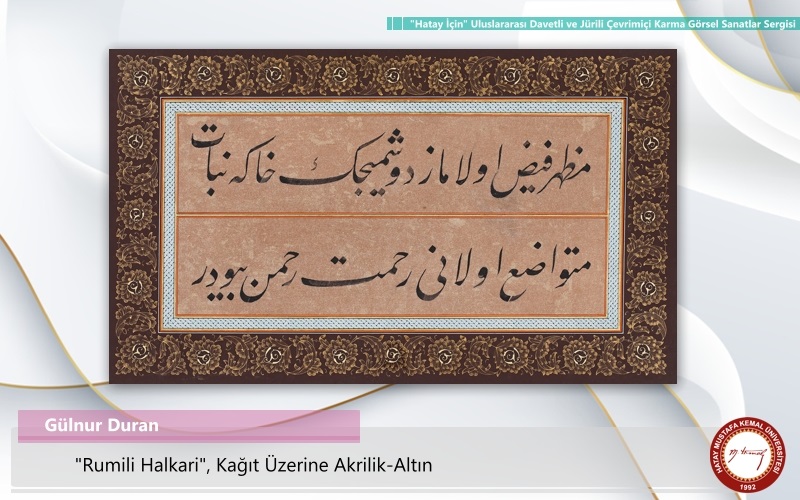 "Hatay İçin" Uluslararası Davetli ve Jürili Çevrimiçi Karma Görsel Sanatlar Sergisi
مظهر فيض اولاماز دوشميجك خاكه نبات
متواضع اولانى رحمت رحمن بيودر
Gülnur Duran
"Rumili Halkari", Kağıt Üzerine Akrilik-Altın
HATAY MUSTAFA KEMAL ÜNİVERSİTESİ
1992